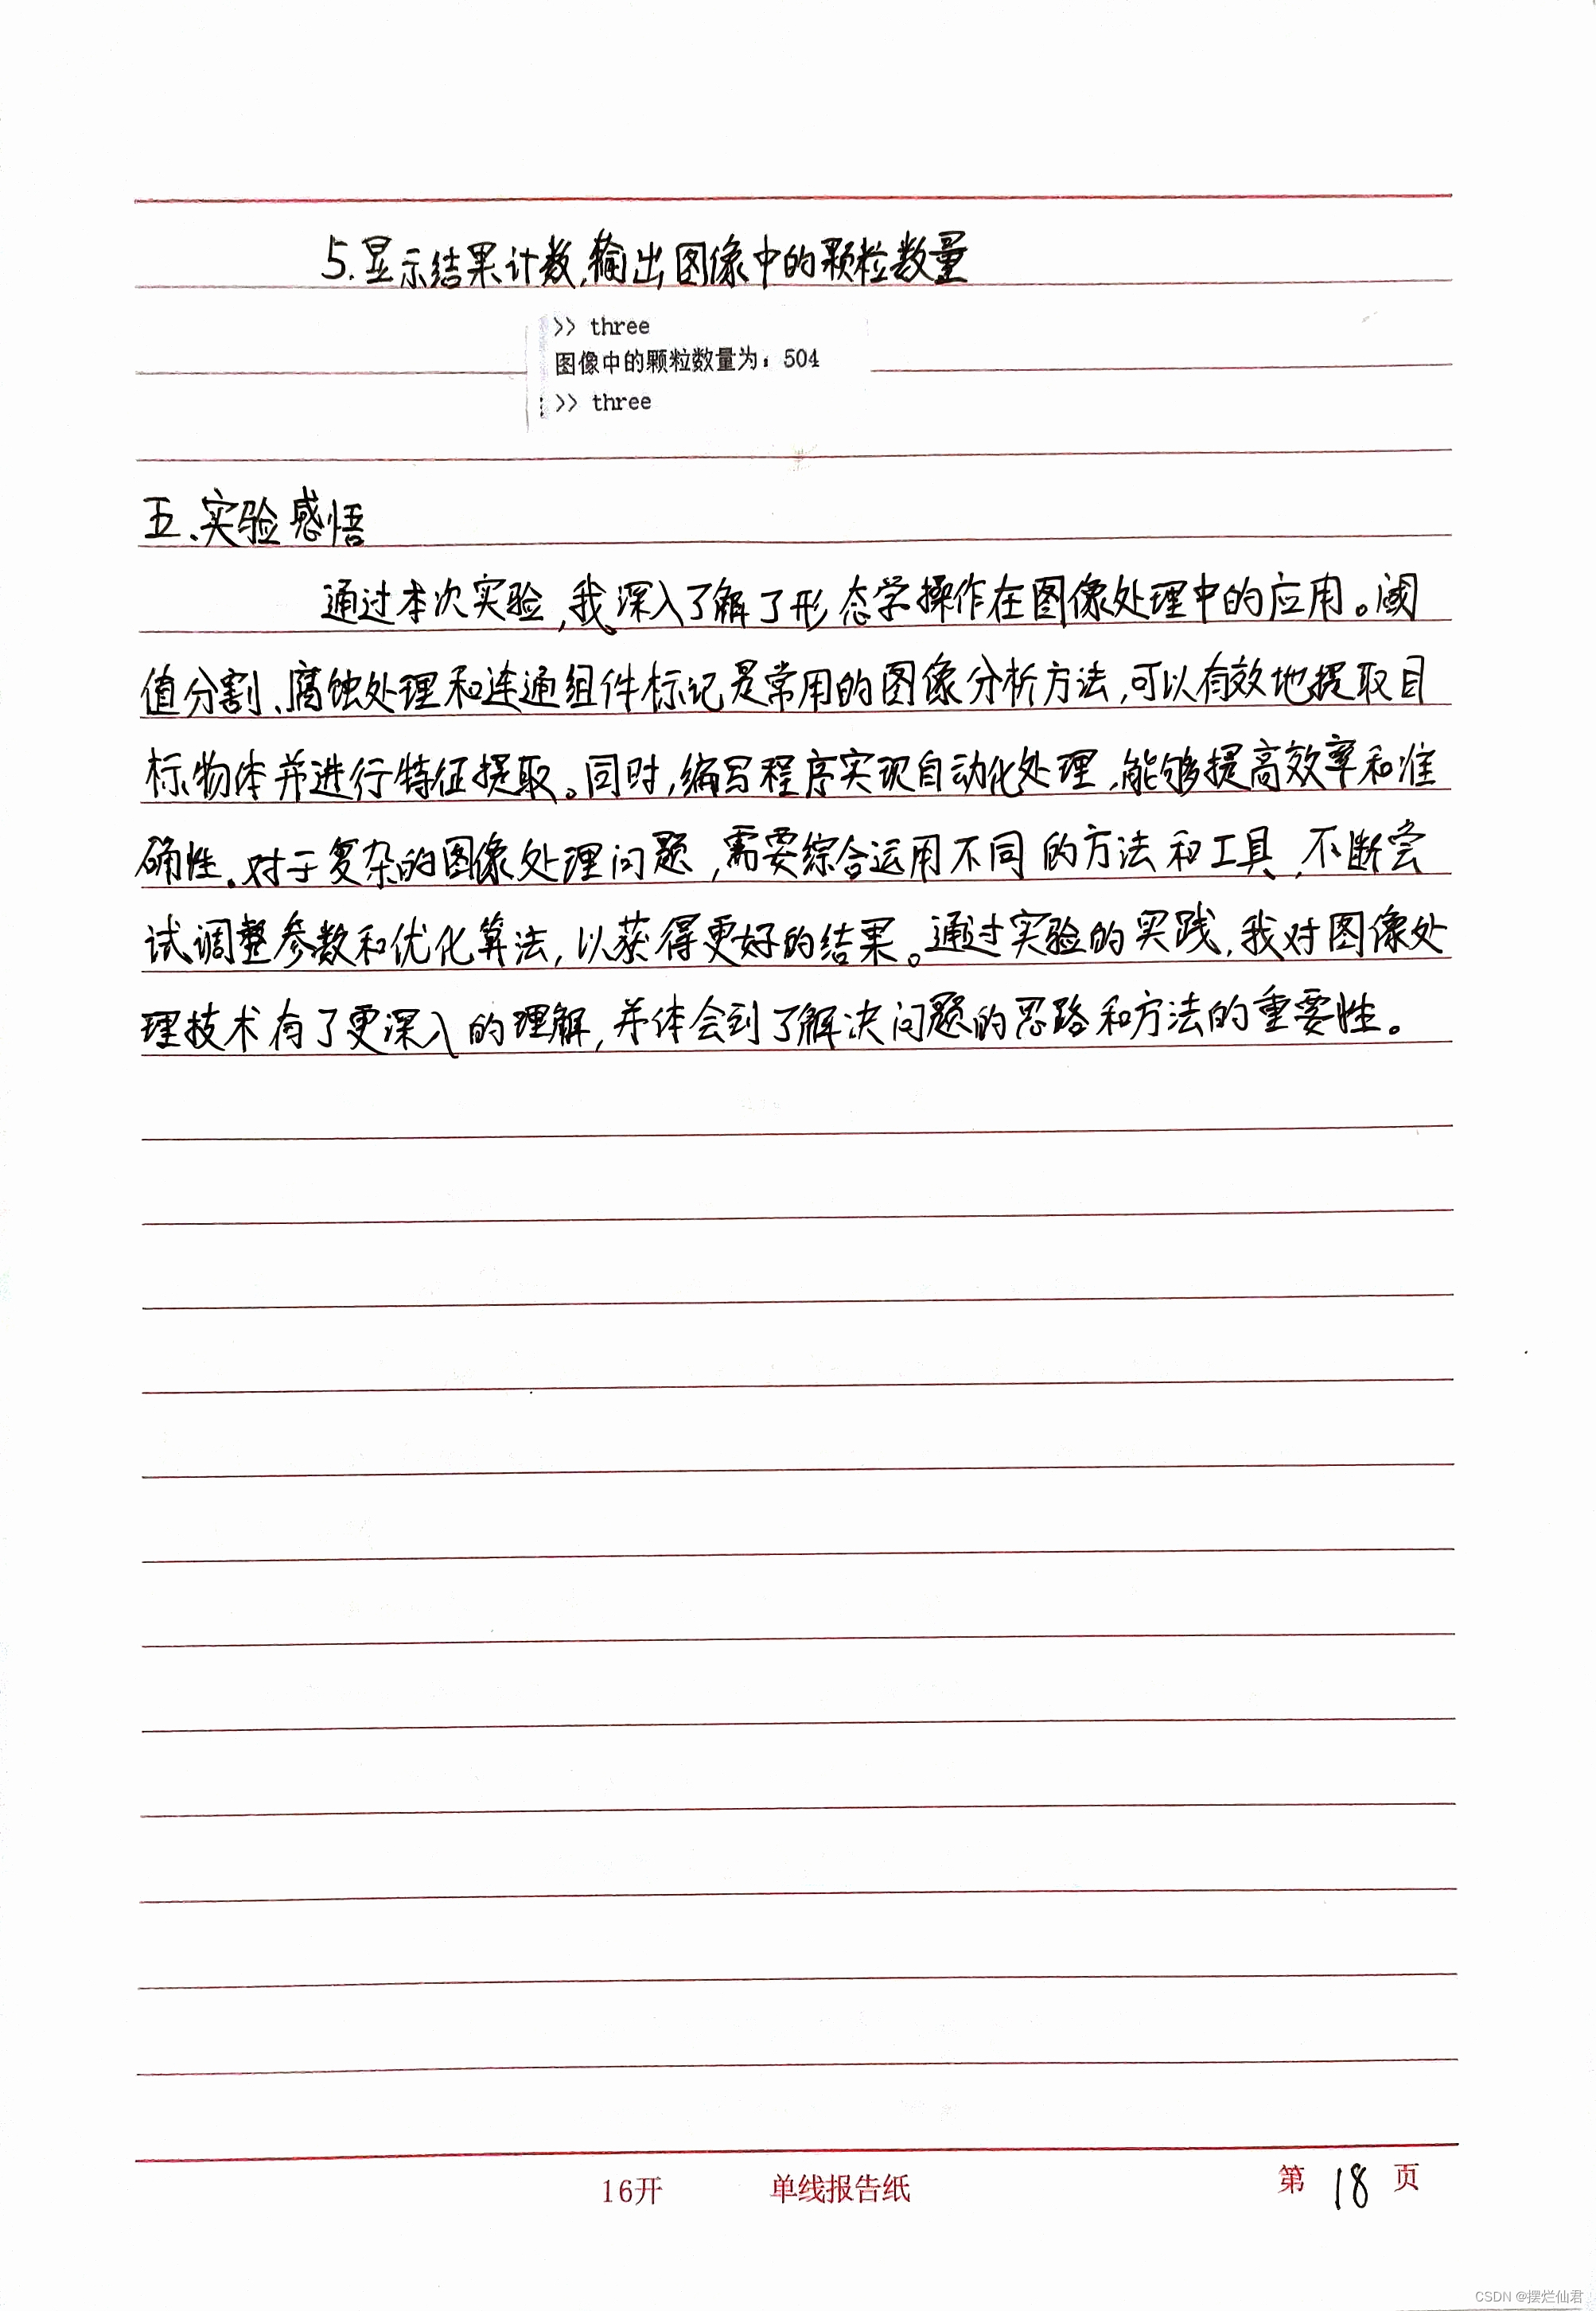 5.显示结果计数,输出图像中的颗粒数量
>> three
图像中的颗粒数量为: 504
>> three
五、实验感悟
通过本次实验,我深入了解了形态学操作在图像处理中的应用。阈
值分割、腐蚀处理和连通组件标记是常用的图像分析方法,可以有效地提取目
标物体并进行特征提取。同时,编写程序实现自动化处理,能够提高效率和准
确性。对于复杂的图像处理问题,需要综合运用不同的方法和工具,不断尝
试调整参数和优化算法,以获得更好的结果。通过实验的实践,我对图像处
理技术有了更深入的理解,并体会到了解决问题的思路和方法的重要性。
16开 单线报告纸 第 18 页
CSDN @摆烂仙君